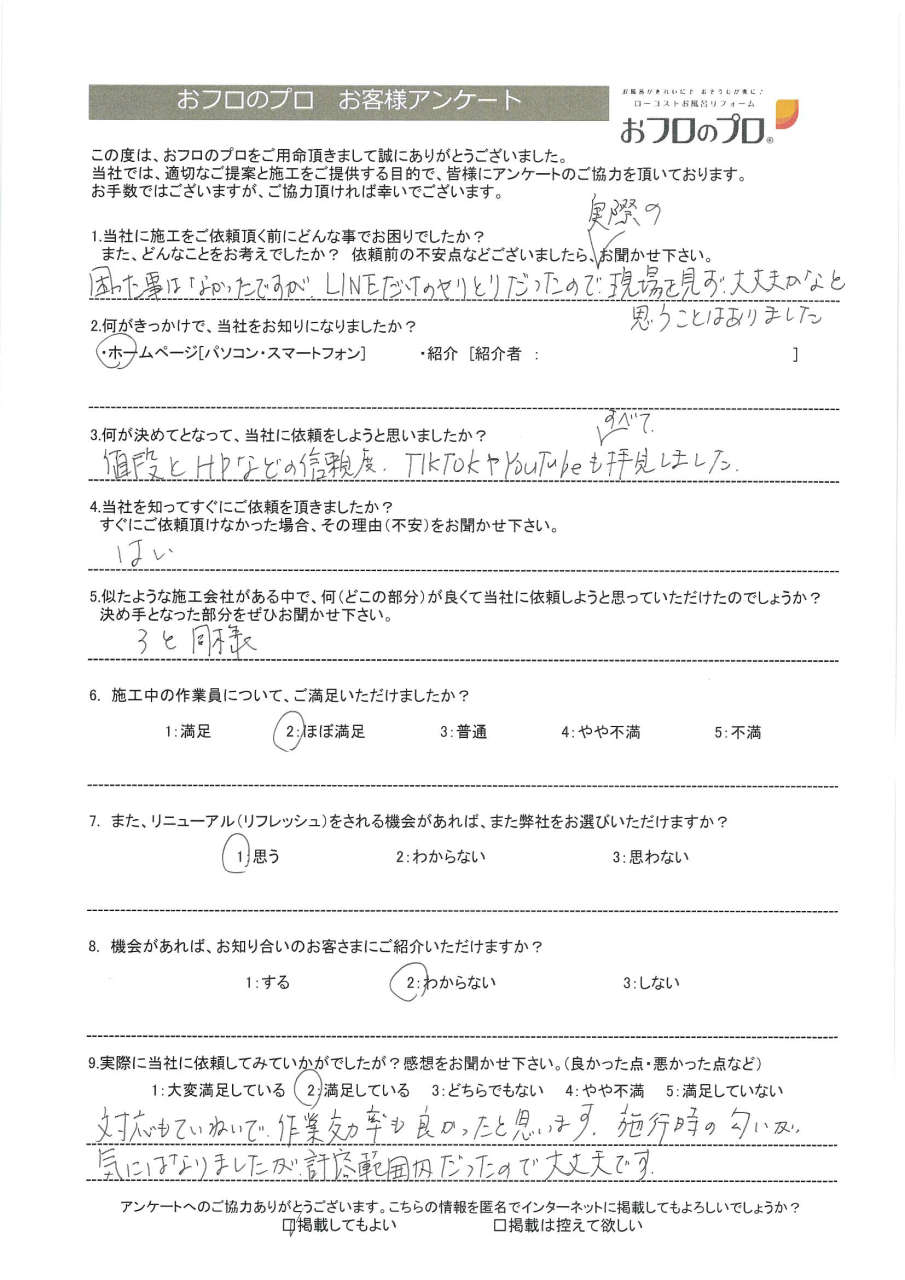 おフロのプロ　お客様アンケート
お風呂がきれいに♪ おそうじが楽に♪
ローコストお風呂リフォーム
おフロのプロ®
この度は、おフロのプロをご用命頂きまして誠にありがとうございました。
当社では、適切なご提案と施工をご提供する目的で、皆様にアンケートのご協力を頂いております。
お手数ではございますが、ご協力頂ければ幸いでございます。
1.当社に施工をご依頼頂く前にどんな事でお困りでしたか？
また、どんなことをお考えでしたか？ 依頼前の不安点などございましたら、お聞かせ下さい。
実際の
困った事はなかったですが、LINEだけのやりとりだったので、現場を見ず、大丈夫かなと
思うことはありました
2.何がきっかけで、当社をお知りになりましたか？
・ホームページ[パソコン・スマートフォン]　・紹介 [紹介者 ：　]
3.何が決めてとなって、当社に依頼をしようと思いましたか？
すべて
値段とHPなどの信頼度、TikTokやYouTubeも拝見しました。
4.当社を知ってすぐにご依頼を頂きましたか？
すぐにご依頼頂けなかった場合、その理由（不安）をお聞かせ下さい。
はい
5.似たような施工会社がある中で、何（どこの部分）が良くて当社に依頼しようと思っていただけたのでしょうか？
決め手となった部分をぜひお聞かせ下さい。
3と同様
6. 施工中の作業員について、ご満足いただけましたか？
1：満足　2：ほぼ満足　3：普通　4：やや不満　5：不満
7. また、リニューアル（リフレッシュ）をされる機会があれば、また弊社をお選びいただけますか？
1：思う　2：わからない　3：思わない
8. 機会があれば、お知り合いのお客さまにご紹介いただけますか？
1：する　2：わからない　3：しない
9.実際に当社に依頼してみていかがでしたが？感想をお聞かせ下さい。（良かった点・悪かった点など）
1：大変満足している　2：満足している　3：どちらでもない　4：やや不満　5：満足していない
対応もていねいで、作業効率も良かったと思います。施行時の匂いが、
気にはなりましたが、許容範囲内だったので大丈夫です。
アンケートへのご協力ありがとうございます。こちらの情報を匿名でインターネットに掲載してもよろしいでしょうか？
☑掲載してもよい　□掲載は控えて欲しい